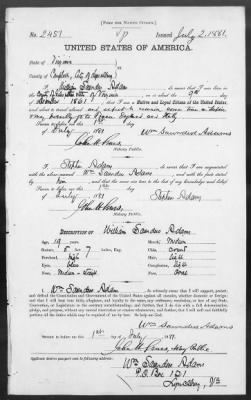 [FORM FOR NATIVE CITIZEN.]
No. 2451 Issued July 2, 1881.
UNITED STATES OF AMERICA.
State of Virginia
County of Campbell, City of Lynchburg
I, William Saunders Adams, do swear that I was born in
on or about the 9th day
of 1861; that I am a Native and Loyal Citizen of the United States,
and about to travel abroad,
Sworn to before me, this 1st day
of July 1881 Wm Saunders Adams
John H.
Notary Public.
I, Stephen Adams, do swear that I am acquainted
with the above-named Wm Saunders Adams, and with the facts stated
by him, and that the same are true to the best of my knowledge and belief.
Sworn to before me, this 1st day
of July 1881 Stephen Adams
John H.
Notary Public.
DESCRIPTION OF William Saunders Adams
Age, 19 years. Mouth, medium
Stature, 5 feet 7 inches, Eng. Chin,
Forehead, high Hair, light
Eyes, blue Complexion, light
Nose, Face, oval
I, Wm Saunders Adams, do solemnly swear that I will support, protect, and
defend the Constitution and Government of the United States against all enemies, whether domestic or foreign;
and that I will bear true faith, allegiance, and loyalty to the same, any ordinance, resolution, or law of any State,
Convention, or Legislature to the contrary notwithstanding; and further, that I do this with a full determination,
pledge, and purpose, without any mental reservation or evasion whatsoever; and further, that I will well and faithfully
perform all the duties which may be required of me by law. So help me God.
Wm Saunders Adams
Sworn to before me, this
1st day of July 1881.
John H. Notary Public
Wm Saunders Adams
P.O. Box 121
Lynchburg, Va